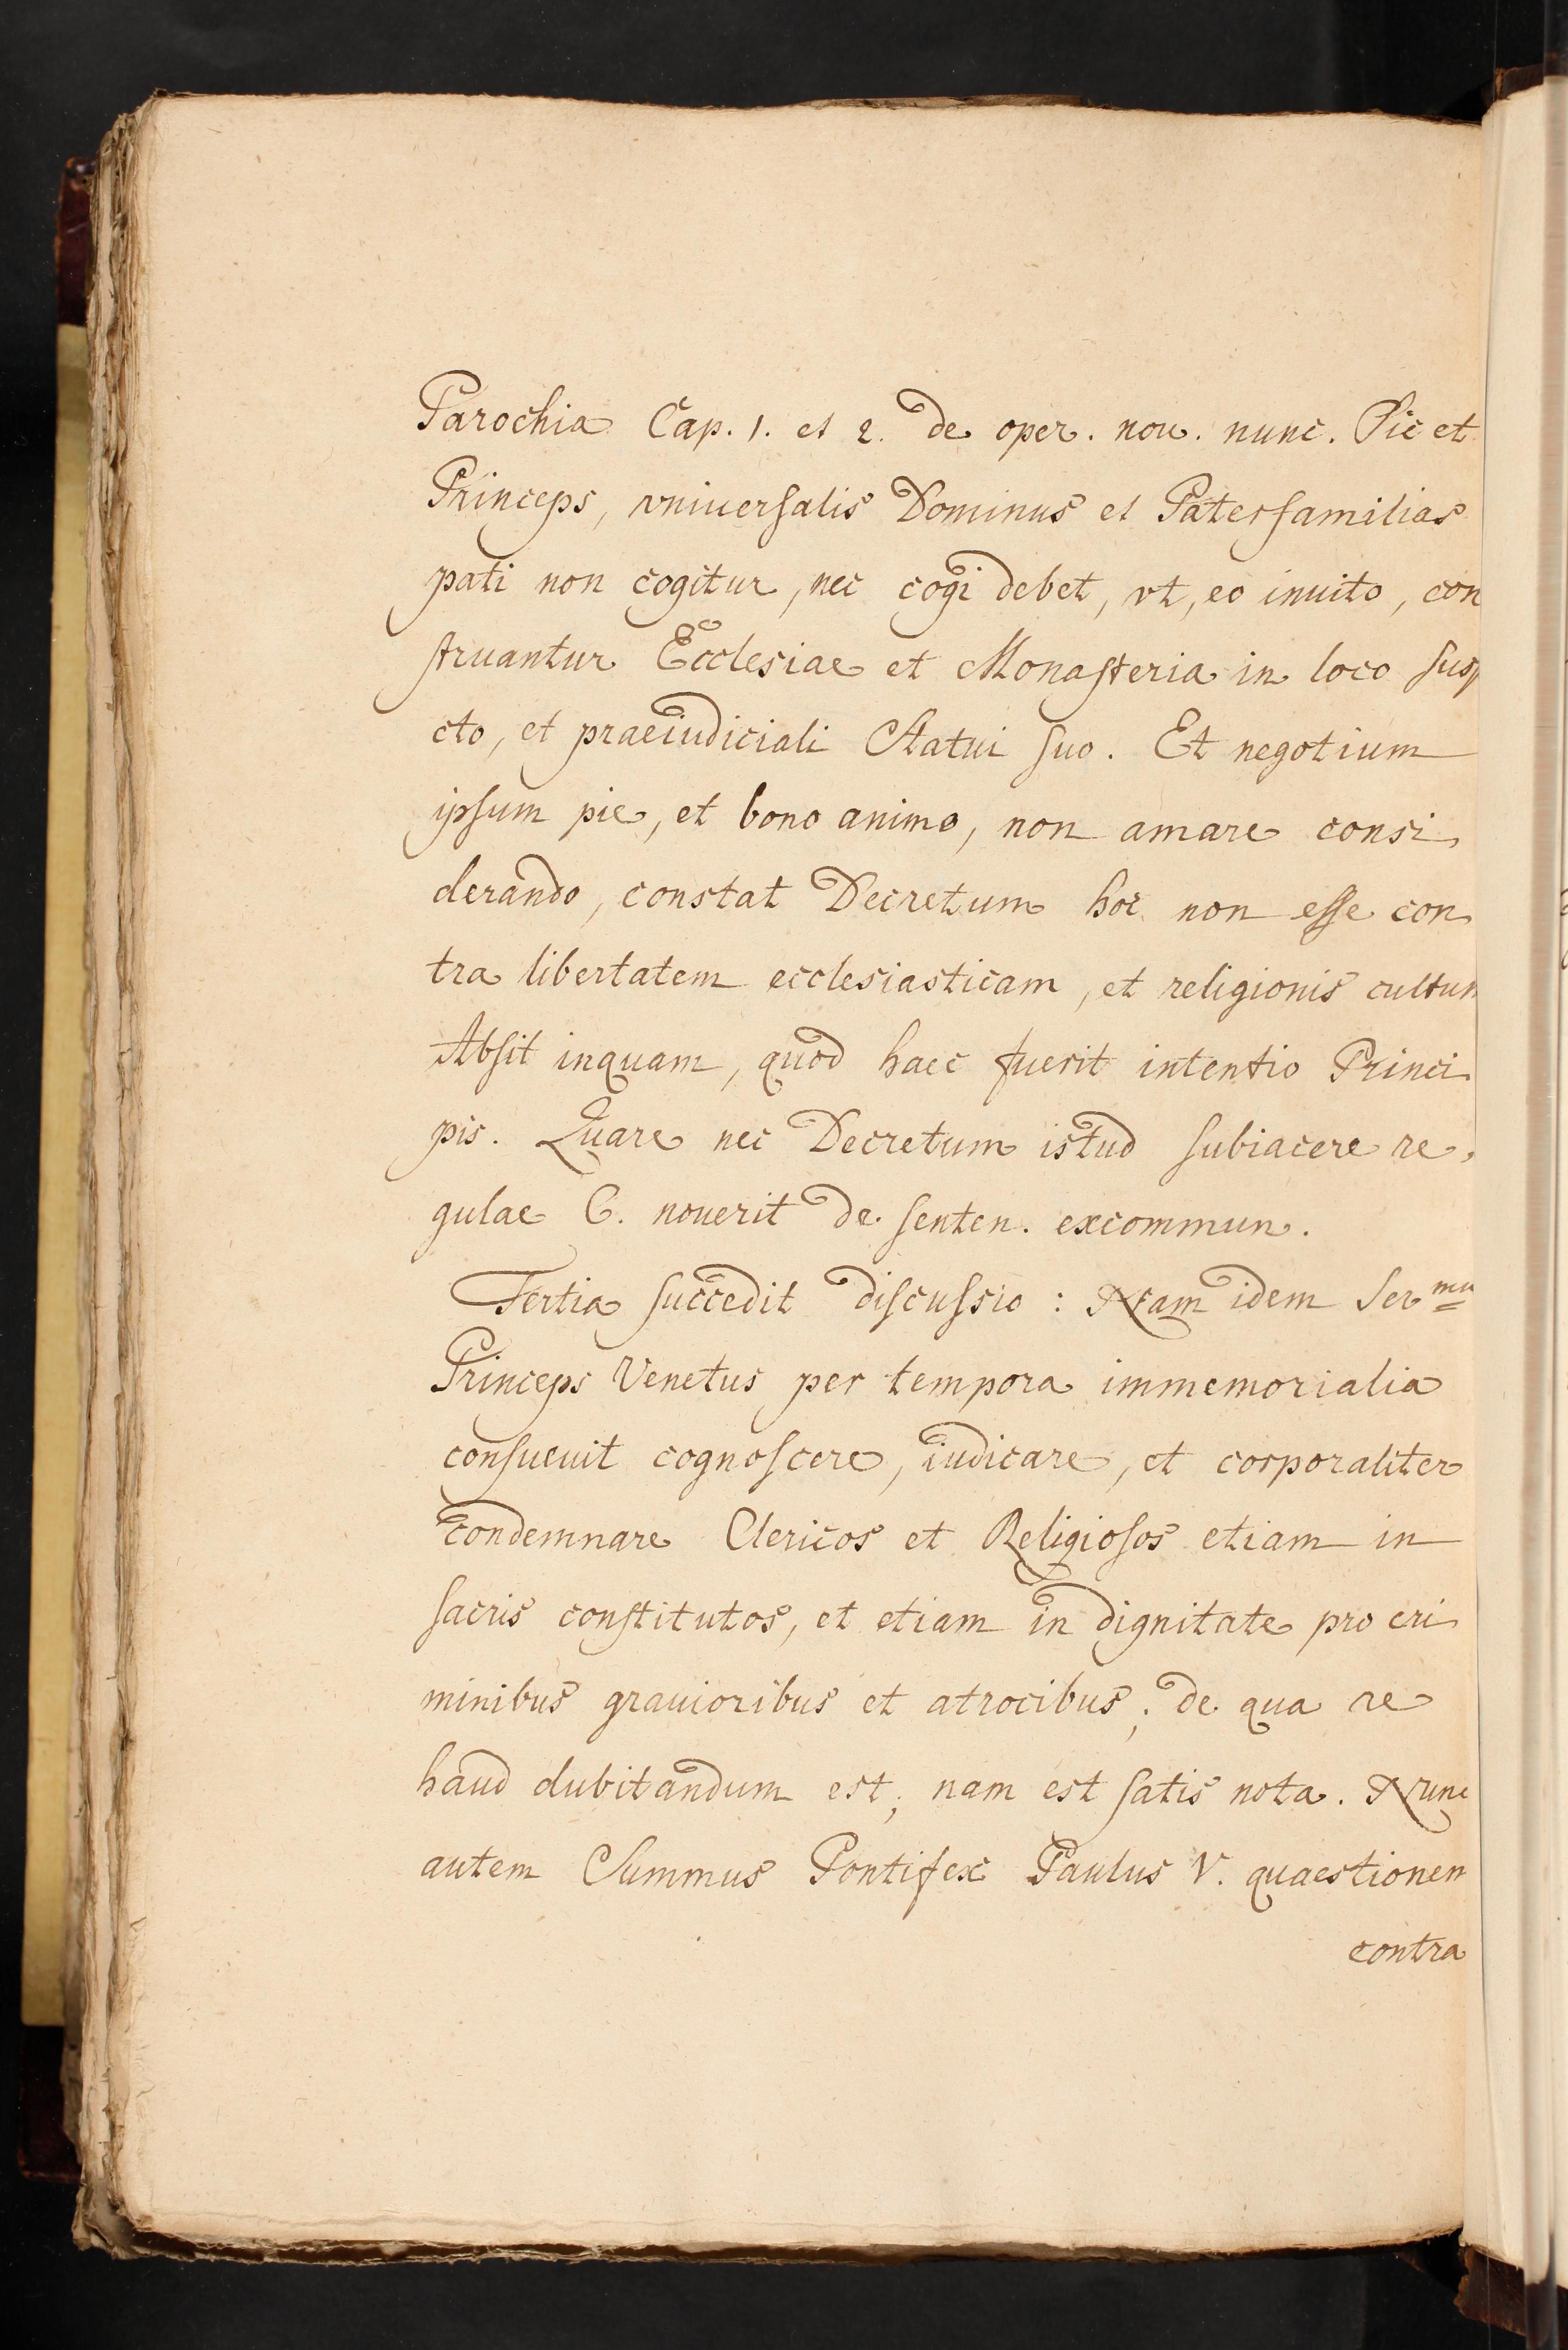 Parochia Cap. 1. et 2. de oper. nou. nunc. Sic et
Princeps, vniuersalis Dominus et Paterfamilias
pati non cogitur, nec cogi debet, vt, eo inuito, con
struantur Ecclesiae et Monasteria in loco susp
cto, et praeiudiciali Statui suo. Et negotium
ipsum pie, et bono animo, non amare consi,
derando, constat Decretum hoc non esse con
tra libertatem ecclesiasticam, et religionis cultum
Absit inquam, quod haec fuerit intentio Princi
pis. Quare nec Decretum istud subiacere re,
gulae C. nouerit de senten. excommun.
Tertia succedit discussio : Nam idem Ser^mu
Princeps Venetus per tempora immemorialia
consueuit cognoscere, iudicare, et corporaliter
condemnare Clericos et Religiosos etiam in
sacris constitutos, et etiam in dignitate pro cri
minibus grauioribus et atrocibus; de qua re
haud dubitandum est; nam est satis nota. Nunc
autem Summus Pontifex Paulus V. quaestionem
contra